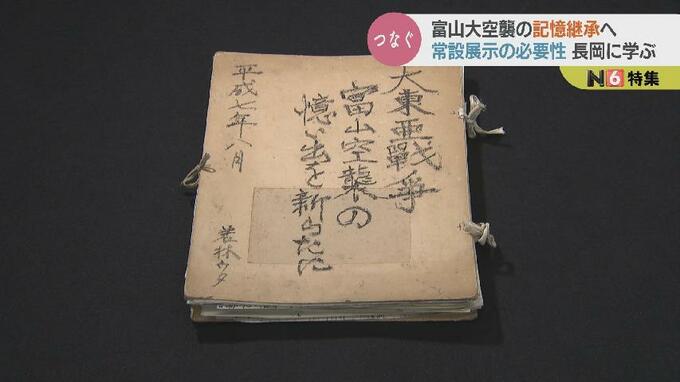 つなぐ
富山大空襲の記憶継承へ
常設展示の必要性 長岡に学ぶ
N6特集
大東亜戦争
富山空襲の
憶い出を新らたに
平成七年八月
若林ウタ